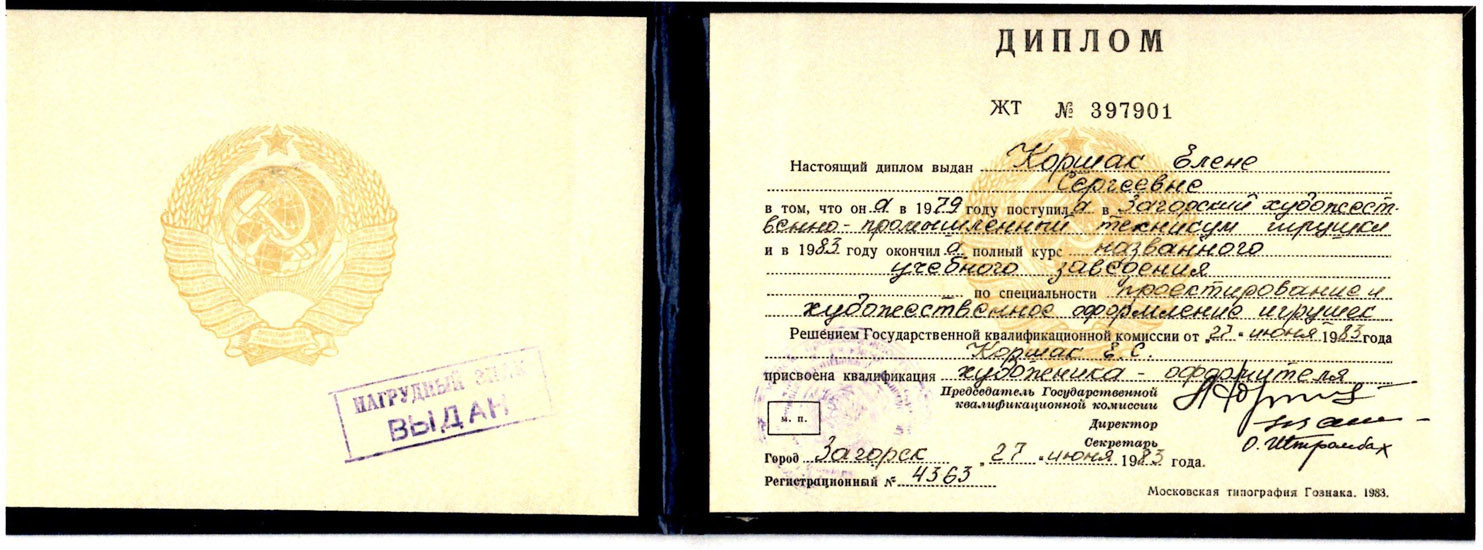 НАГРУДНЫЙ ЗНАК
ВЫДАН
ДИПЛОМ
ЖТ № 397901
Настоящий диплом выдан Коршак Елене
Сергеевне
в том, что она в 1979 году поступила в Загорский художест-
венно-промышленный техникум игрушки
и в 1983 году окончила полный курс названного
учебного заведения
по специальности проектирование и
художественное оформление игрушек
Решением Государственной квалификационной комиссии от „27" июня 1983 года
Коршак Е.С.
присвоена квалификация художника - оформителя
Председатель Государственной
квалификационной комиссии
Директор
Секретарь О. Штромбах
м. п.
Город Загорск „27" июня 1983 года.
Регистрационный № 4363
Московская типография Гознака. 1983.